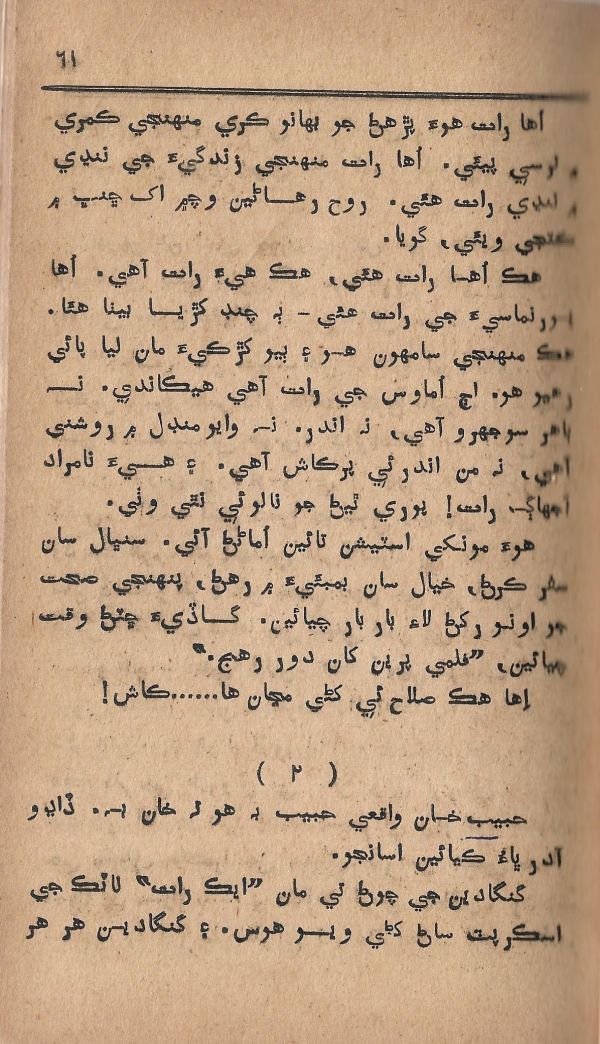 ٦١
اُها رات هوءَ پڙهڻ جو بهانو ڪري منهنجي ڪمري
پيئي. اُها رات منهنجي زندگيءَ جي ننڍي
۾ ننڍي رات هئي. روح رهاڻين وچ۾ اک ڇنڀ ۾
ويئي، گويا.
هڪ اُها رات هئي، هڪ هيءَ رات آهي. اُها
جي رات هئي - ٻه چنڊ کڙيا بيٺا هئا.
هڪ منهنجي سامهون هو ۽ ٻيو کڙڪيءَ مان ليا پائي
رهيو هو. اڄ اُماوس جي رات آهي هيڪاندي. نہ
ٻاهر سوجهرو آهي، نہ اندر. نہ وايو منڊل ۾ روشني
آهي، نہ من اندر ئي پرڪاش آهي. ۽ هيءَ نامراد
رات! پوري ٿيڻ جو نالو ئي نٿي وٺي.
هوءَ مونکي اسٽيشن تائين اُماڻڻ آئي. سنڀال سان
سفر ڪرڻ، خيال سان بمبئيءَ ۾ رهڻ، پنهنجي صحت
جو اونو رکڻ لاءِ بار بار چيائين. گاڏيءَ ڇٽڻ وقت
چيائين، ”فلمي پرين کان دور رهج.“
اِها هڪ صلاح ئي کڻي مڃان ها......ڪاش!
( ٢ )
حبيب خان واقعي حبيب بہ هو تہ خان بہ. ڏاڍو
آدر ڀاءُ ڪيائين اسانجو.
گنگادين جي چوڻ تي مان ”ايڪ رات“ ناٽڪ جي
اسڪرپٽ ساڻ کڻي ويو هوس. ۽ گنگادين هر هر